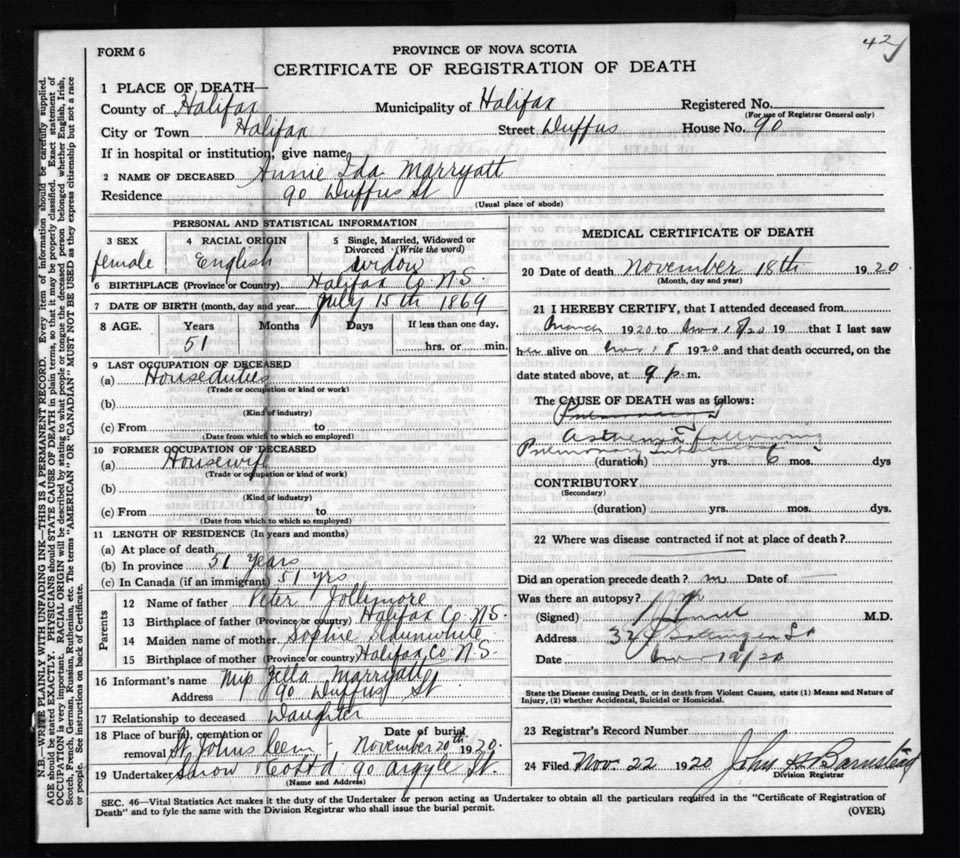 42
FORM 6
PROVINCE OF NOVA SCOTIA
CERTIFICATE OF REGISTRATION OF DEATH
1 PLACE OF DEATH—
County of Halifax Municipality of Halifax Registered No.
(For use of Registrar General only)
City or Town Halifax Street Duffus House No. 90
If in hospital or institution, give name
2 NAME OF DECEASED Annie Ida Marryatt
Residence 90 Duffus St
(Usual place of abode)
PERSONAL AND STATISTICAL INFORMATION
3 SEX
female
4 RACIAL ORIGIN
English
5 Single, Married, Widowed or Divorced (Write the word)
widow
6 BIRTHPLACE (Province or Country) Halifax Co N.S.
7 DATE OF BIRTH (month, day and year) July 15th 1869
8 AGE. Years Months Days If less than one day,
51 hrs. or min.
9 LAST OCCUPATION OF DECEASED
(a) Houseduties
(Trade or occupation or kind or work)
(b)
(Kind of industry)
(c) From to
(Date from which to which so employed)
10 FORMER OCCUPATION OF DECEASED
(a) Housewife
(Trade or occupation or kind of work)
(b)
(Kind of industry)
(c) From to
(Date from which to which so employed)
11 LENGTH OF RESIDENCE (In years and months)
(a) At place of death
(b) In province 51 Years
(c) In Canada (if an immigrant) 51 yrs
Parents
12 Name of father Peter Jollymore
13 Birthplace of father (Province or country) Halifax Co. N.S.
14 Maiden name of mother Sophie
15 Birthplace of mother (Province or country) Halifax Co N.S.
16 Informant's name Marryatt
Address 90 Duffus St
17 Relationship to deceased Daughter
18 Place of burial, cremation or removal St. Johns Cem. Date of burial November 20th 1920
19 Undertaker Snow & Co Ltd 90 Argyle St.
(Name and Address)
MEDICAL CERTIFICATE OF DEATH
20 Date of death November 18th 1920
(Month, day and year)
21 I HEREBY CERTIFY, that I attended deceased from
March 1920 to Nov 18/20 19 that I last saw
her alive on Nov 18 1920 and that death occurred, on the
date stated above, at 9 p.m.
The CAUSE OF DEATH was as follows:
Pulmonary
Asthenia following
Pulmonary
(duration) yrs. 6 mos. dys
CONTRIBUTORY
(Secondary)
(duration) yrs. mos. dys.
22 Where was disease contracted if not at place of death?
Did an operation precede death? no Date of
Was there an autopsy? no
(Signed) M.D.
Address Gottingen St
Date Nov 19/20
State the Disease causing Death, or in death from Violent Causes, state (1) Means and Nature of
Injury, (2) whether Accidental, Suicidal or Homicidal.
23 Registrar's Record Number
24 Filed Nov. 22 1920 John H Barnstead
Division Registrar
SEC. 46—Vital Statistics Act makes it the duty of the Undertaker or person acting as Undertaker to obtain all the particulars required in the "Certificate of Registration of
Death" and to fyle the same with the Division Registrar who shall issue the burial permit.
(OVER)
N.B.—WRITE PLAINLY WITH UNFADING INK—THIS IS A PERMANENT RECORD. Every item of information should be carefully supplied.
AGE should be stated EXACTLY. PHYSICIANS should STATE CAUSE OF DEATH in plain terms, so that it may be properly classified. Exact statement of
OCCUPATION is very important. RACIAL ORIGIN will be described by stating to what people or tongue the deceased person belonged whether English, Irish,
Scotch, French, German, Russian, Ruthenian, etc. The terms "AMERICAN" OR "CANADIAN" MUST NOT BE USED as they express citizenship but not a race
or people. See instructions on back of Certificate.